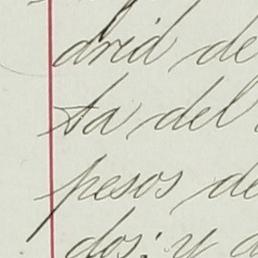 drid de
ta del
pesos de
dos; y